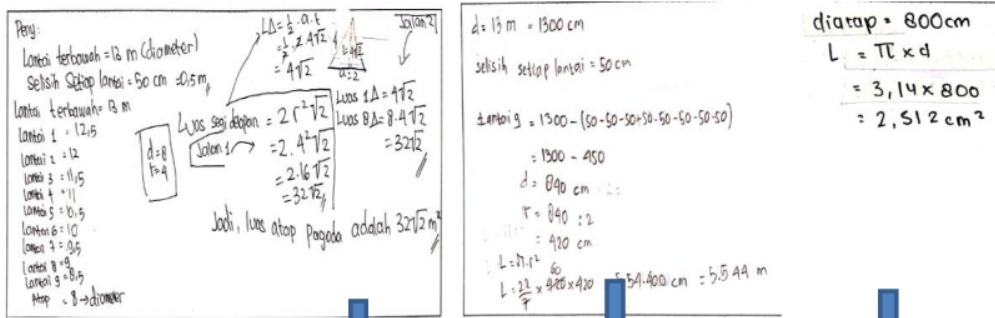 Peny:
Lantai terbawah = 13 m (diameter)
Selisih Setiap lantai = 50 cm = 0,5 m
Lantai terbawah = 13 m
Lantai 1 = 12,5
Lantai 2 = 12
Lantai 3 = 11,5
Lantai 4 = 11
Lantai 5 = 10,5
Lantai 6 = 10
Lantai 7 = 9,5
Lantai 8 = 9
Lantai 9 = 8,5
Atap = 8 → diameter
d = 8
r = 4
L∆ = 1/2 . a . t
= 4√2
Luas segi delapan = 2 r² √2
Jalan 1
= 2 . 4² √2
= 2 . 16 √2
= 32 √2
Jalan 2
a = 2
Luas 1∆ = 4√2
Luas 8∆ = 8 . 4√2
= 32√2
Jadi, luas atap pagoda adalah 32√2 m²
d = 13 m = 1300 cm
selisih setiap lantai = 50 cm
Lantai 9 = 1300 - (50-50-50+50-50-50-50-50)
= 1300 - 450
d = 840 cm
r = 840 : 2
= 420 cm
L = π . r²
L = 22/7 × 420 × 420
60
= 5.544 m
diatap = 800 cm
L = π × d
= 3,14 × 800
= 2,512 cm²